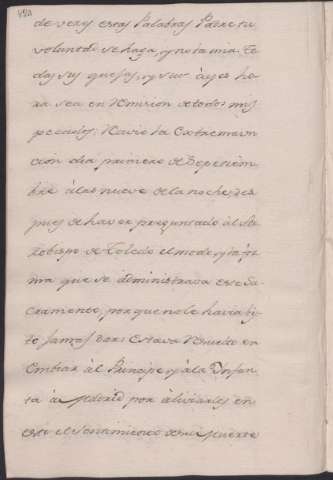 de veras estas Palabras Padre tu
voluntad se haga, y no la mia. To
das sus quejas, y sus àyes ho
ra sea en Remision de todos mis
pecados. Reciviò la Extremaun
cion dia primero de
bre à las nueve de la noche, des
pues de haver preguntado àl Ar
zobispo de Toledo el modo, y la for
ma que se administrava este Sa
cramento, porque no le havia vis
to jamas dar: Estava Resuelto en
Embiar àl Principe, y à la Infan
ta à Madrid por aliviarles en
esto el sentimiento de su muerte